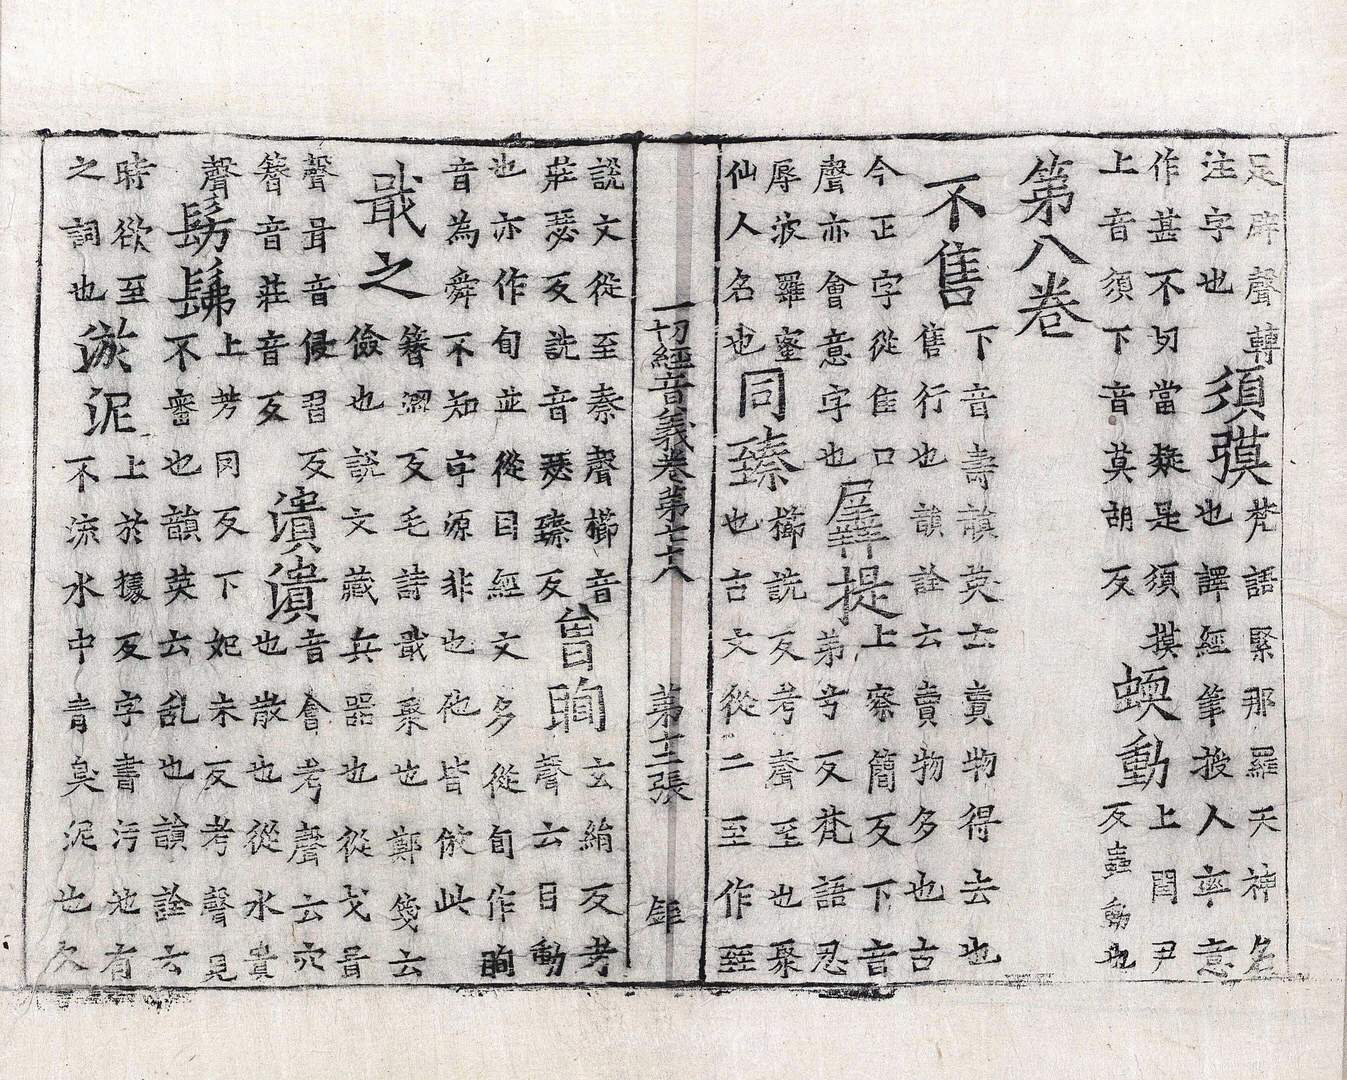 足辟聲轉
注字也
須蟆
梵語緊那羅天神名
也譯經筆授人率意
作甚不切當疑是須摸
上音須下音莫胡反
蝡動
上閏尹
反蟲動也
第八卷
不售
下音壽韻英云賣物得去也
售行也韻詮云賣物多也古
今正字從隹口
聲亦會意字也
羼提
上察簡反下音
弟兮反梵語忍
辱波羅蜜
仙人名也
同臻
櫛詵反考聲至也聚
也古文從二至作臸
一切經音義卷第七十八 第十二張
說文從至秦聲櫛音
莊瑟反詵音瑟臻反
曾眴
玄絹反考
聲云目動
也亦作旬並從目經文多從旬作眴
音為舜不知字源非也他皆倣此
戢之
簪澀反毛詩戢聚也鄭箋云
儉也說文藏兵器也從戈咠
聲咠音侵習反
簪音莊音反
潰潰
音會考聲云穴
也散也從水貴
聲
髣髴
上芳罔反下妃未反考聲見
不審也韻英云乱也韻詮云
時欲至
之詞也
淤泥
上於據反字書污池有
不流水中青臭泥也久